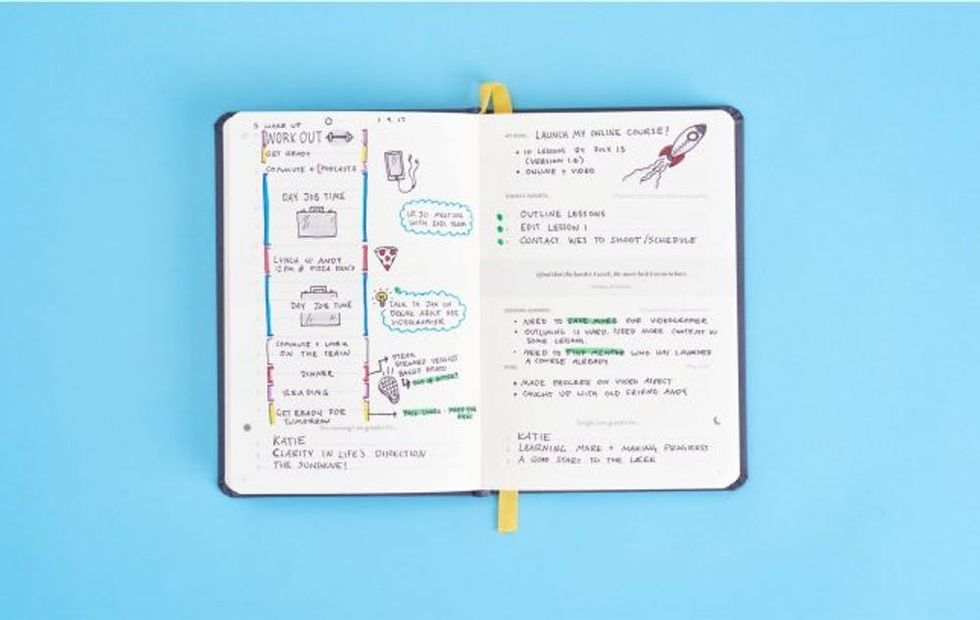 5 WAKE UP
1.9.17
WORK OUT
GET READY
COMMUTE + (PODCASTS
DAY JOB TIME
10:30 MEETING
WITH
TEAM
LUNCH W/ ANDY
12 PM @
DAY JOB TIME
TALK TO JAN ON
ABOUT HER
VIDEOGRAPHER
COMMUTE + WORK
ON THE TRAIN
DINNER
STEAK
BAKED POTATO
READING
GET READY FOR
TOMORROW
This morning I am grateful for...
KATIE
CLARITY IN LIFE'S DIRECTION
THE SUNSHINE!
LAUNCH MY ONLINE COURSE!
• 10 LESSONS BY JULY 15
(VERSION 1.0)
• ONLINE + VIDEO
TODAY'S TARGETS
OUTLINE LESSONS
EDIT LESSON 1
CONTACT WES TO SHOOT/SCHEDULE
I find that the harder I work, the more luck I seem to have.
• NEED TO SAVE MORE FOR VIDEOGRAPHER
• OUTLINING IS HARD. NEED MORE CONTENT IN
SOME LESSONS.
• NEED TO FIND MENTOR WHO HAS LAUNCHED
A COURSE ALREADY
WINS
• MADE PROGRESS ON VIDEO ASPECT
• CAUGHT UP WITH OLD FRIEND ANDY
Tonight I am grateful for...
KATIE
LEARNING MORE + MAKING PROGRESS
A GOOD START TO THE WEEK